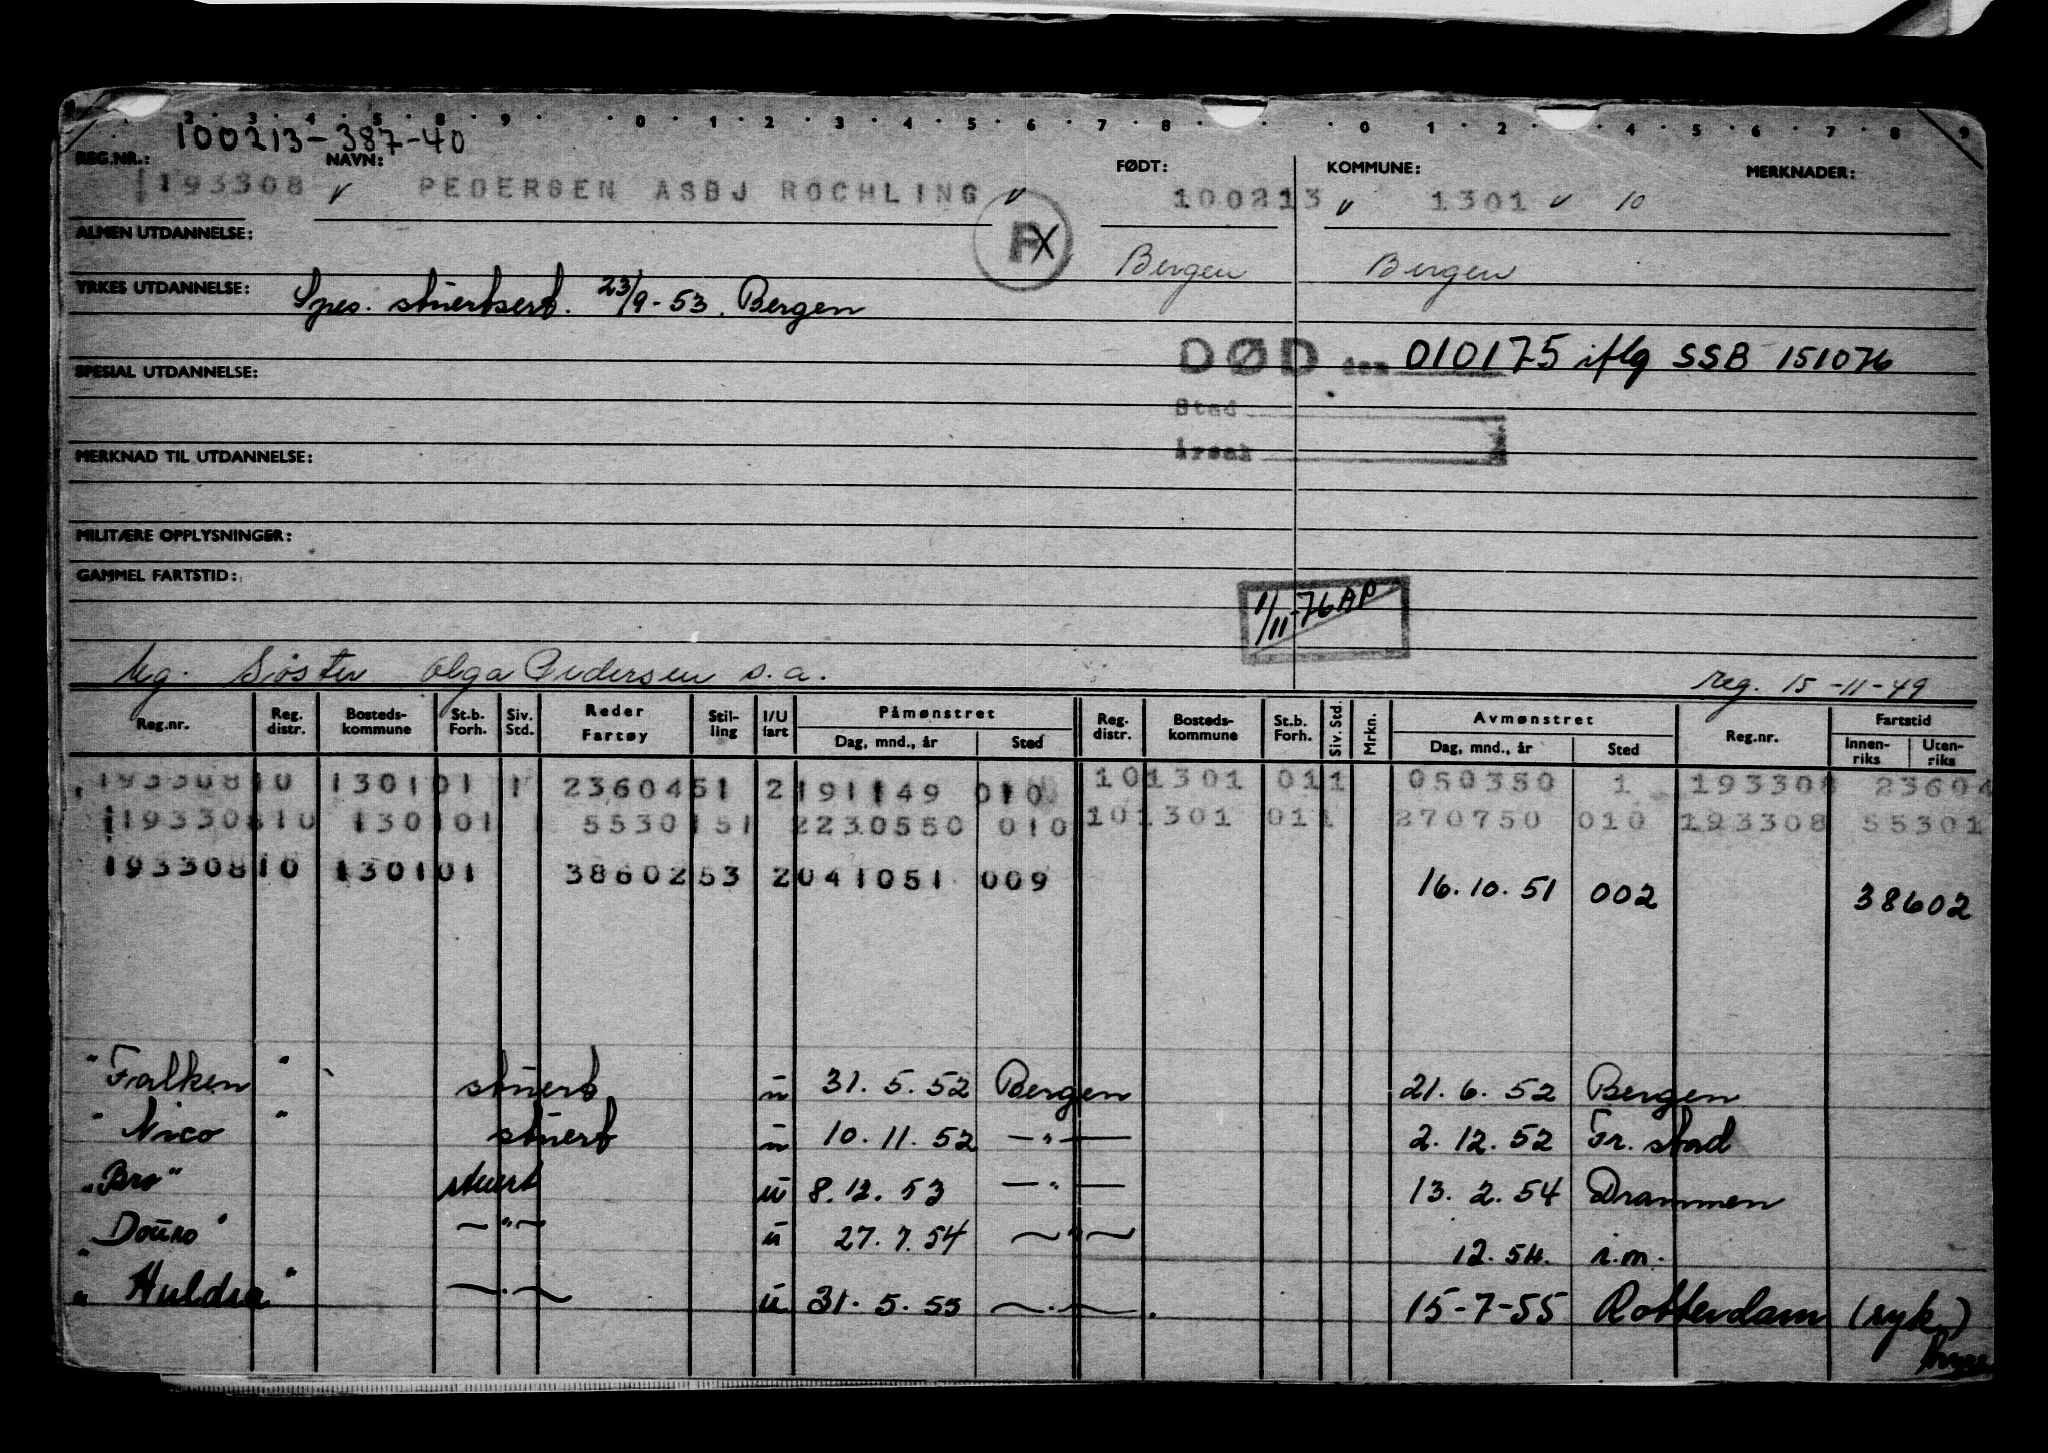 2 3 4 5 8 9 0 1 2 3 4 5 6 7 8 0 1 2 4 5 6 7 8 9
100213-387-40
REG.NR.: NAVN: FØDT: KOMMUNE: MERKNADER:
193308 v PEDERSEN ASBJ ROCHLING v 100213 v 1301 v 10
ALMEN UTDANNELSE:
Bergen Bergen
YRKES UTDANNELSE: Spes. stuertsert. 23/9-53. Bergen
DØD den 010175 iflg SSB 151076
SPESIAL UTDANNELSE:
Sted
Årsak
MERKNAD TIL UTDANNELSE:
MILITÆRE OPPLYSNINGER:
GAMMEL FARTSTID:
1/11-76 AP
Søster Olga Pedersen s.a. reg. 15-11-49
Reg.nr. Reg. distr. Bosteds-kommune St.b. Forh. Siv. Std. Reder Fartøy Stil-ling I/U fart Påmønstret Dag, mnd., år Sted Reg. distr. Bosteds-kommune St.b. Forh. Siv. Std. Mrkn. Avmønstret Dag, mnd., år Sted Reg.nr. Fartstid Innen-riks Uten-riks
19330810 130101 1 2360451 2 191149 010 101301 011 050350 1 193308 23604
19330810 130101 5530151 2230550 010 101301 011 270750 010 193308 55301
19330810 130101 3860253 2041051 009 16.10.51 002 38602
"Falken" stuert u 31.5.52 Bergen 21.6.52 Bergen
"Nico" stuert u 10.11.52 —"— 2.12.52 Fr.stad
"Bro" stuert u 8.12.53 —"— 13.2.54 Drammen
"Douro" —"— u 27.7.54 —"— 12.54. i.m.
"Huldra" —"— u 31.5.55 —"— 15-7-55 Rotterdam (syk)